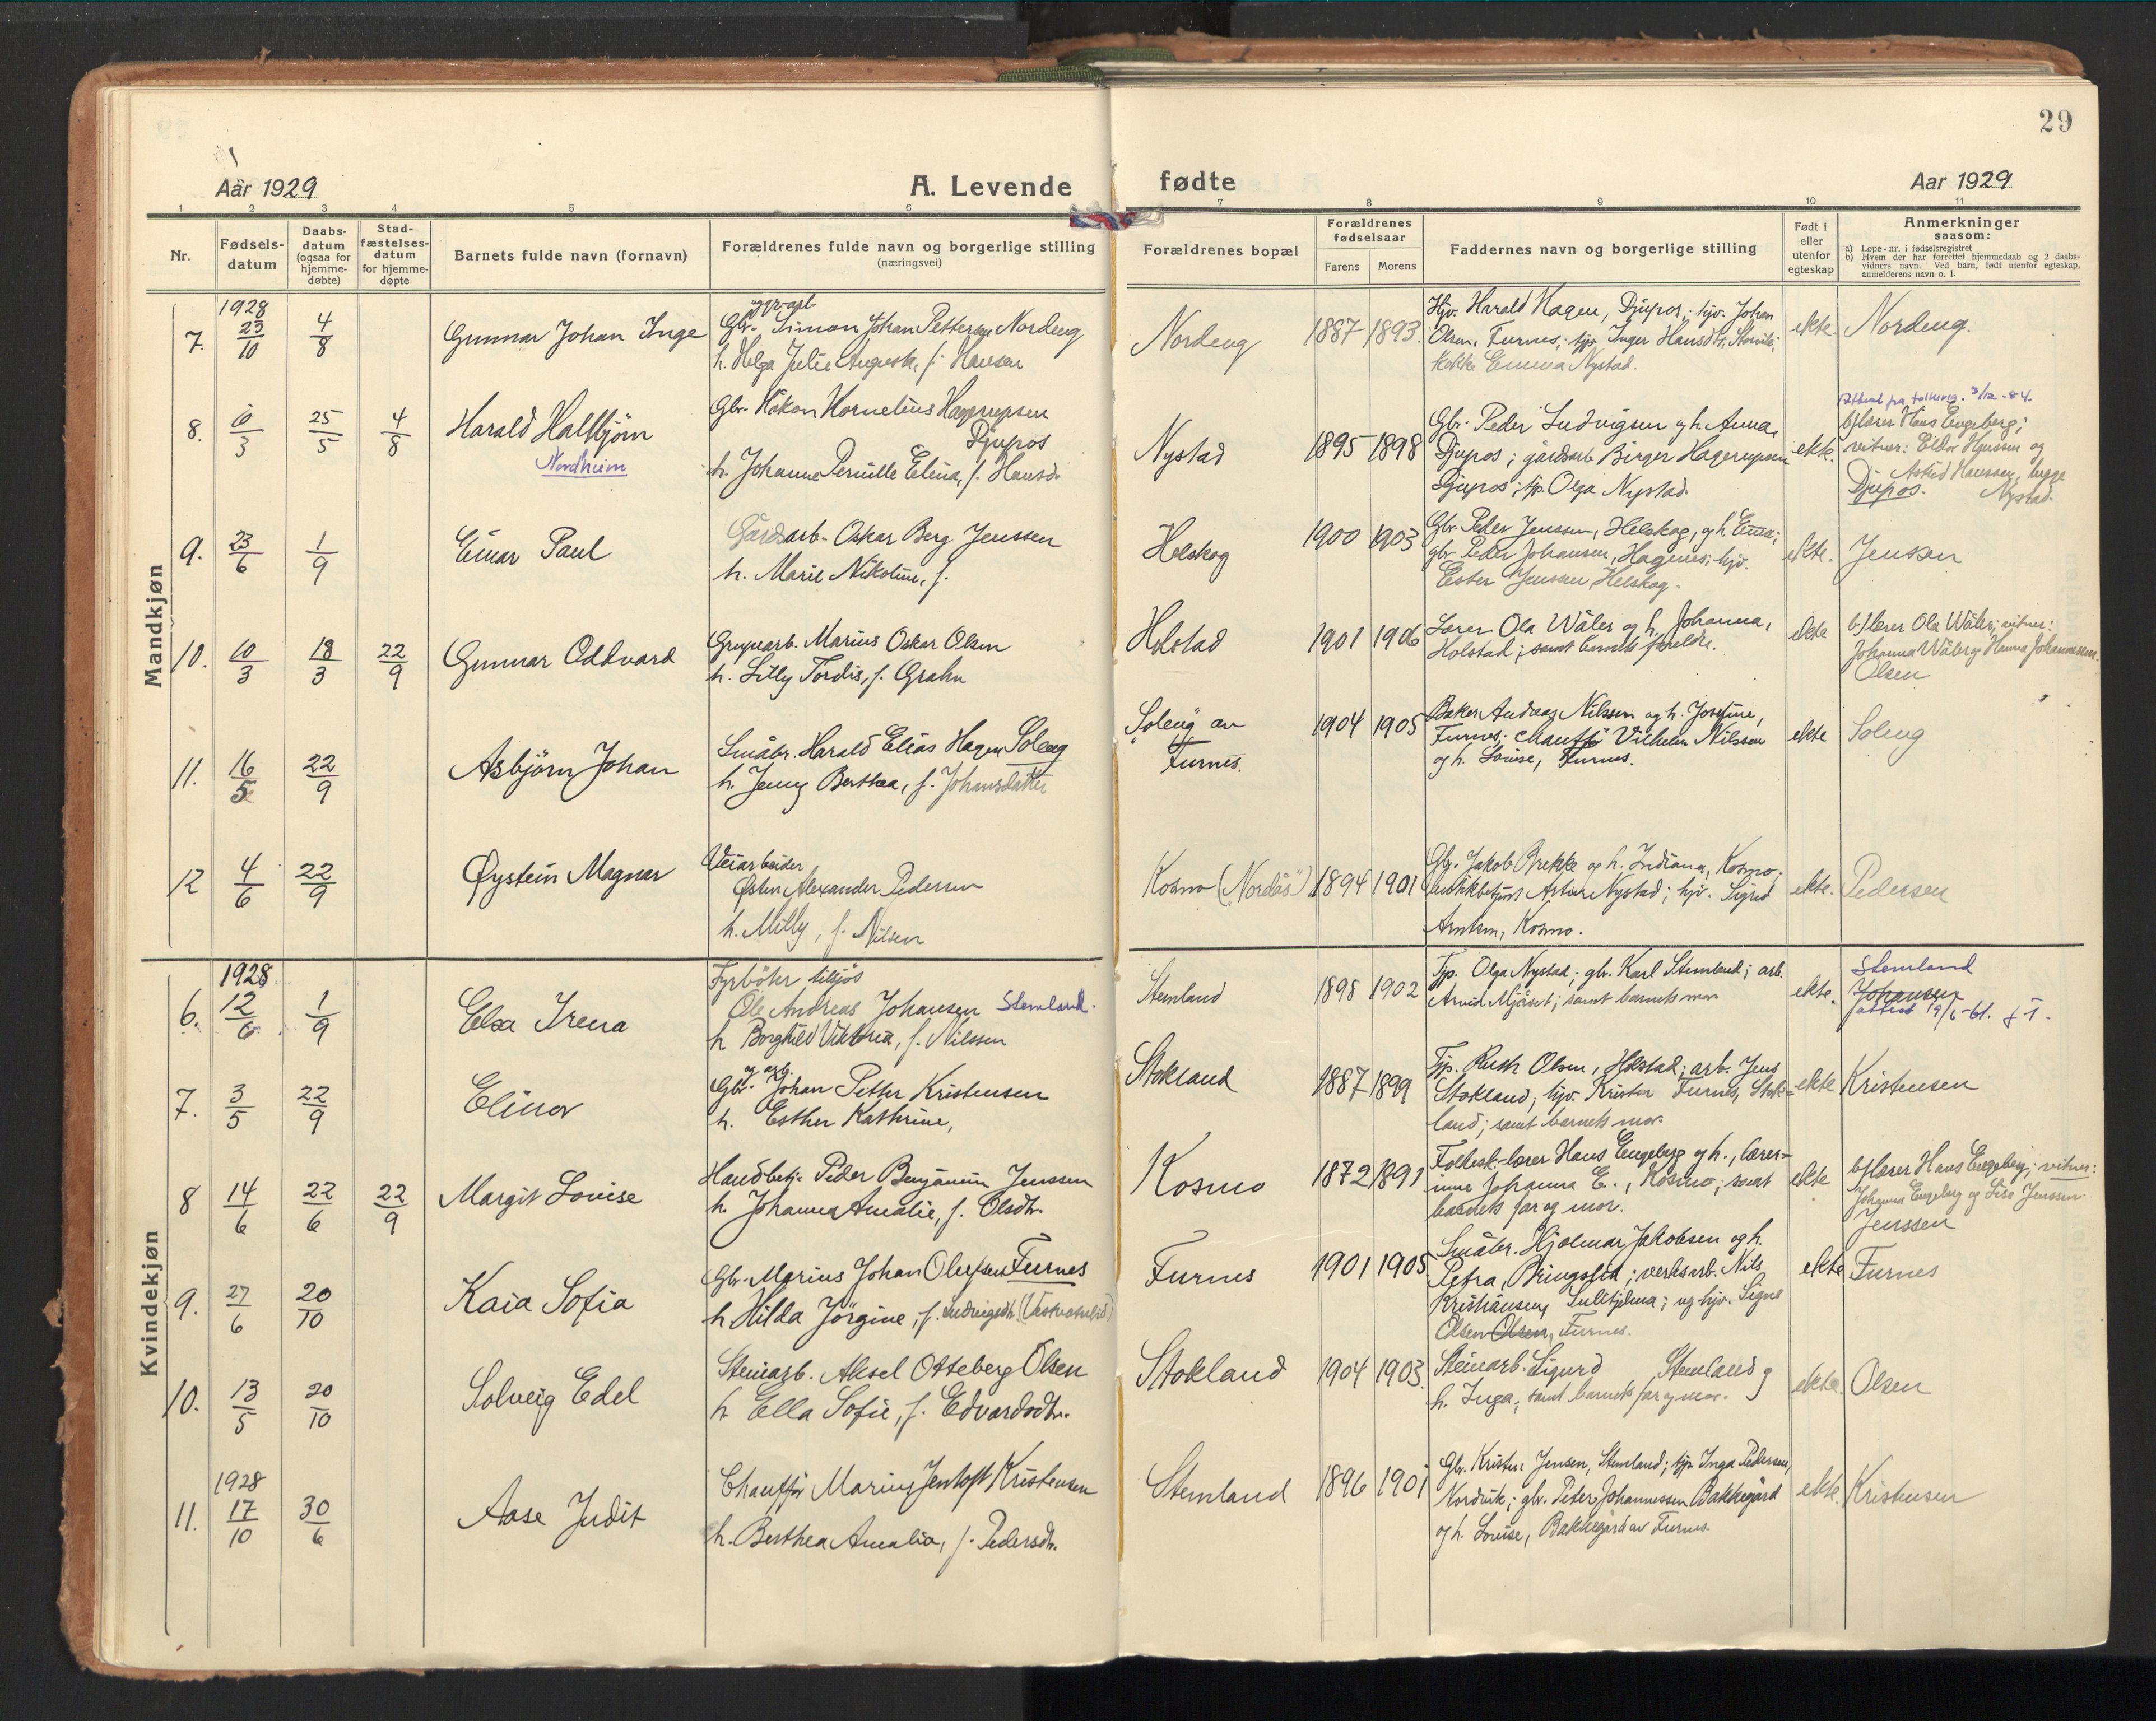 29
Aar 1929
A. Levende
fødte
Aar 1929
1 2 3 4 5 6 7 8 9 10 11
Nr.
Fødsels-
datum
Daabs-
datum
(ogsaa for
hjemme-
døbte)
Stad-
fæstelses-
datum
for hjemme-
døpte
Barnets fulde navn (fornavn)
Forældrenes fulde navn og borgerlige stilling
(næringsvei)
Forældrenes bopæl
Forældrenes
fødselsaar
Farens Morens
Faddernes navn og borgerlige stilling
Født i
eller
utenfor
egteskap
Anmerkninger
saasom:
a) Løpe-nr. i fødselsregistret
b) Hvem der har forrettet hjemmedaab og 2 daabs-
vidners navn. Ved barn, født utenfor egteskap,
anmelderens navn o. l.
Mandkjøn
7. 1928 23/10 4/8 Gunnar Johan Inge
Gbr. Simon Johan Pettersen Nordeng
h. Helga Julie Augusta, f. Hansen
Nordeng 1887 1893
Hjv. Harald Hagen, Djupos; hjv. Johan
Olsen, Furnes; tjp. Inger Hansdtr,
kokke Emma Nystad.
ekte. Nordeng.
8. 10/3 25/5 4/8 Harald Hallbjørn
Nordheim
Gbr. Håkon Kornelius Hagerupsen
Djupos
h. Johanna Pernille Elina, f. Hansd.
Nystad 1895 1898
Gbr. Peder Ludvigsen og h. Anna,
Djupos; gårdsarb. Birger Hagerupsen
Djupos; tjp. Olga Nystad.
ekte.
b) lærer Hans Engeberg;
vitner: Hansen og
Astrid Hanssen, begge
Djupos. Nystad.
9. 23/6 1/9 Einar Paul
Gårdsarb. Oskar Berg Jenssen
h. Marie Nikoline, f.
Helskog 1900 1903
Gbr. Peder Jenssen, Helskog, og h. Emma;
gbr. Peder Johansen, Hagenes; hjv.
Ester Jenssen, Helskog.
ekte. Jenssen
10. 10/3 18/3 22/9 Gunnar Oddvard
Gruvarb. Marius Oskar Olsen
h. Lilly Tordis, f. Grahn
Holstad 1901 1906
Lærer Ola Wåler og h. Johanna,
Holstad; samt barnets foreldre.
ekte
b) lærer Ola Wåler; vitner:
Johanna Wåler og Hanna Johannessen.
Olsen
11. 16/5 22/9 Asbjørn Johan
Småbr. Harald Elias Hagen Soleng
h. Jenny Berthea, f. Johansdatter
"Soleng" av
Furnes.
1904 1905
Baker Andreas Nilssen og h. Josefine,
Furnes; chauffør Vilhelm Nilssen
og h. Louise, Furnes.
ekte Soleng
12 4/6 22/9 Øystein Magnar
Veiarbeider
Østen Alexander Pedersen
h. Milly, f. Nilsen
Kosmo ("Nordås") 1894 1901
Gbr. Jakob Brekke og h. Indiana, Kosmo;
butikkbetjent Artur Nystad; hjv. Sigrid
Arntsen, Kosmo.
ekte. Pedersen
Kvindekjøn
6. 1928 12/6 1/9 Elsa Irena
Fyrbøter tilsjøs
Ole Andreas Johansen Stemland.
h. Borghild Viktoria, f. Nilssen
Stemland 1898 1902
Tjp. Olga Nystad; gbr. Karl Stemland; arb.
Arvid Mjøset; samt barnets mor
ekte.
Stemland
Johansen
attest 19/6-61.
7. 3/5 22/9 Elinor
Gbr. og arb. Johan Petter Kristensen
h. Esther Kathrine,
Stokland 1887 1899
Tjp. Ruth Olsen, Holstad; arb. Jens
Stokland; hjv. Kristen Furnes, Stok-
land; samt barnets mor.
ekte Kristensen
8 14/6 22/6 22/9 Margit Louise
Handbetj. Peder Benjamin Jenssen
h. Johanna Amalie, f. Olsdtr.
Kosmo 1872 1891
Folkesk.-lærer Hans Engeberg og h., lærer-
inne Johanna E., Kosmo; samt
barnets far og mor.
ekte
b) lærer Hans Engeberg; vitner:
Johanna Engeberg og Lise Jenssen.
Jenssen
9. 27/6 20/10 Kaia Sofia
Gbr. Marius Johan Olufsen Furnes
h. Hilda Jørgine, f. Ludvigsdtr.
Furnes 1901 1905
Småbr. Hjalmar Jakobsen og h.
Petra, Bringslid; verksarb. Nils
Kristiansen, Sulitjelma; ug. hjv. Signe
Olsen Olsen, Furnes.
ekte Furnes
10. 13/5 20/10 Solveig Edel
Steinarb. Aksel Otteberg Olsen
h. Ella Sofie, f. Edvardsdtr.
Stokland 1904 1903
Steinarb. Sigurd Stemland og
h. Inga, samt barnets far og mor.
ekte. Olsen
11. 1928 17/10 30/6 Aase Judit
Chauffør Marius Jentoft Kristensen
h. Berthea Amalia, f. Pedersdtr.
Stemland 1896 1901
Gbr. Kristen Jensen, Stemland; tjp. Inga Pedersen,
Nordvik; gbr. Peder Johannessen Bakkegård
og h. Louise, Bakkegård av Furnes.
ekte. Kristensen